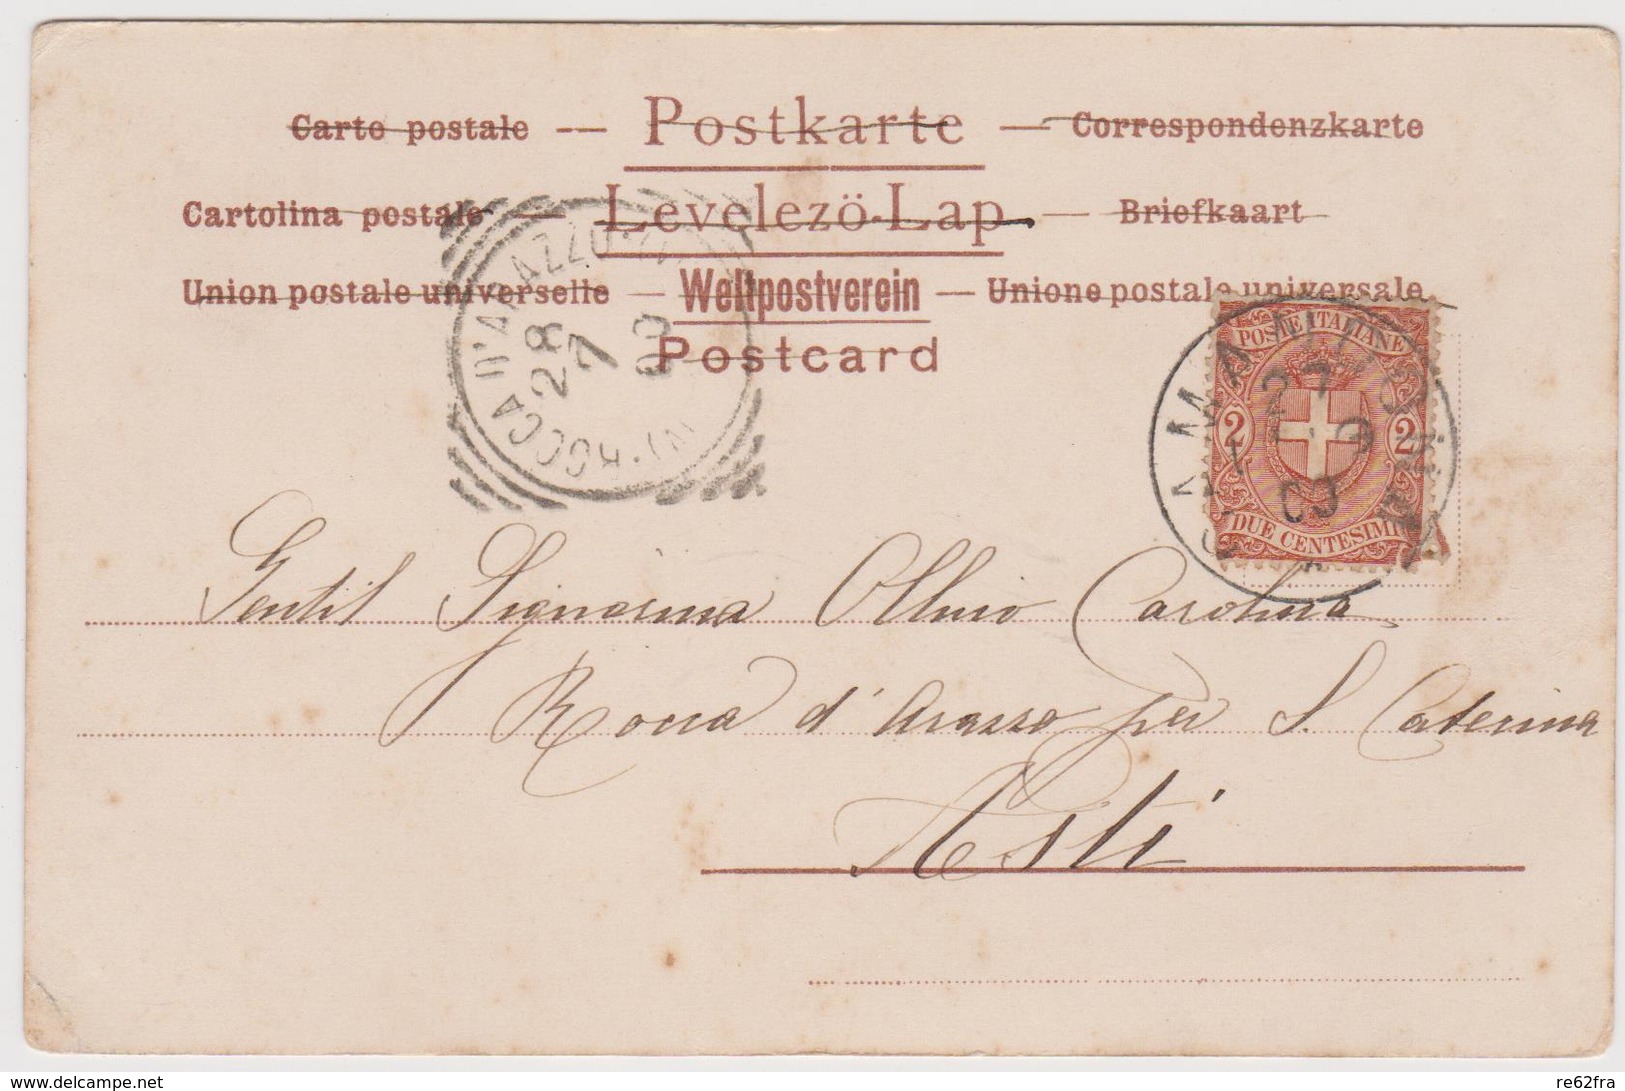 Carte postale — Postkarte — Correspondenzkarte
Cartolina postale — Levelező-Lap — Briefkaart
Union postale universelle — Weltpostverein — Unione postale universale
Postcard
ROCCA D'ARAZZO
28
7
00
POSTE ITALIANE
2 2
DUE CENTESIMI
27
Gentil Signorina Ollino Carolina
Rocca d'Arazzo per S. Caterina
Asti
www.delcampe.net
re62fra